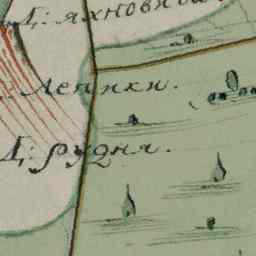 Д: яхновка.
Лепики.
Д: рудня.